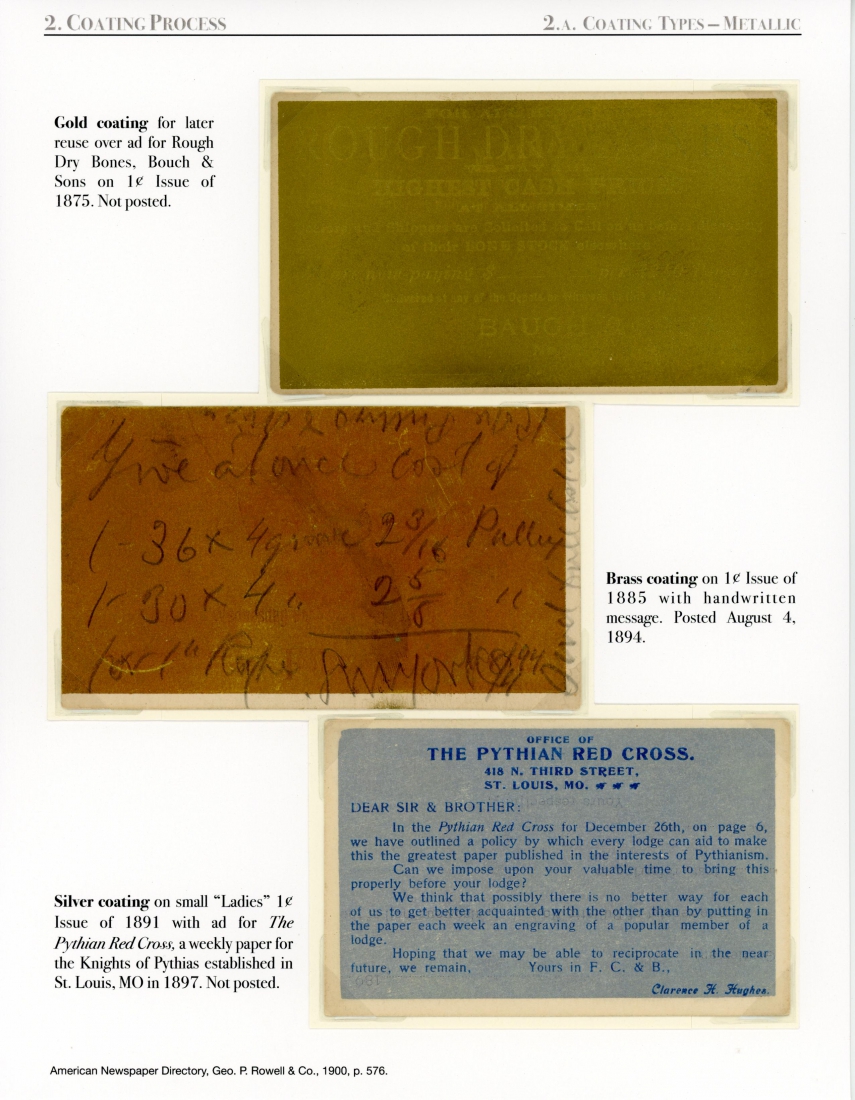 2. COATING PROCESS
2.A. COATING TYPES – METALLIC
Gold coating for later
reuse over ad for Rough
Dry Bones, Bouch &
Sons on 1¢ Issue of
1875. Not posted.
ROUGH DRY
HIGHEST CASH PRICE
AT ALL TIMES
of their BONE STOCK elsewhere
are now paying $
BAUGH &
Give at once cost of
1 - 36 x 4 2 3/16 Pulley
1 - 30 x 4 " 2 5/8 "
Brass coating on 1¢ Issue of
1885 with handwritten
message. Posted August 4,
1894.
OFFICE OF
THE PYTHIAN RED CROSS.
418 N. THIRD STREET,
ST. LOUIS, MO.
DEAR SIR & BROTHER:
In the Pythian Red Cross for December 26th, on page 6,
we have outlined a policy by which every lodge can aid to make
this the greatest paper published in the interests of Pythianism.
Can we impose upon your valuable time to bring this
properly before your lodge?
We think that possibly there is no better way for each
of us to get better acquainted with the other than by putting in
the paper each week an engraving of a popular member of a
lodge.
Hoping that we may be able to reciprocate in the near
future, we remain, Yours in F. C. & B.,
Clarence H. Hughes.
Silver coating on small “Ladies” 1¢
Issue of 1891 with ad for The
Pythian Red Cross, a weekly paper for
the Knights of Pythias established in
St. Louis, MO in 1897. Not posted.
American Newspaper Directory, Geo. P. Rowell & Co., 1900, p. 576.